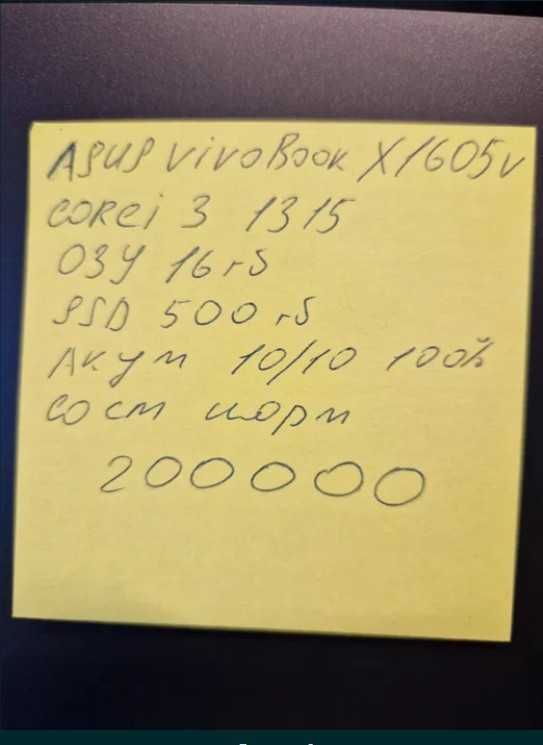 ASUS vivoBook X1605v
corei 3 1315
ОЗУ 16 гб
SSD 500 гб
Акум 10/10 100%
сост норм
200000